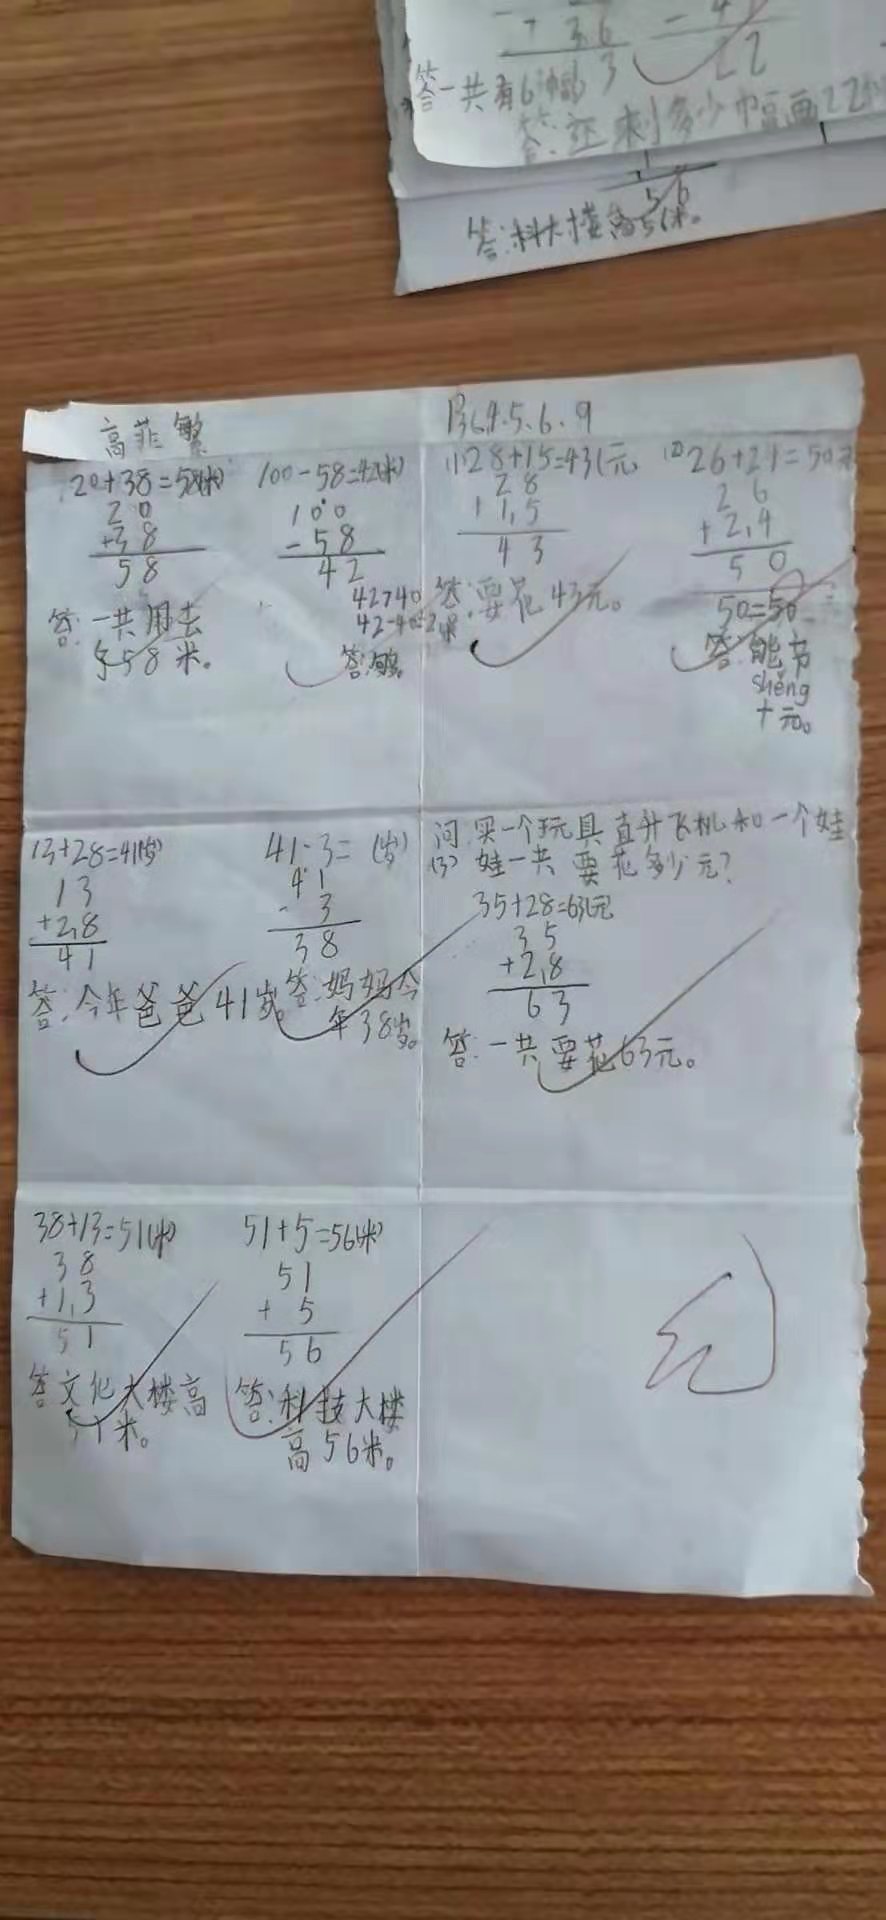 + 36
63
22
答:科大楼高56米。
56
高菲繁
P36 4.5.6.9
20+38=58(米)
20
+38
58
答:一共用去
了58米。
100-58=42(米)
100
-58
42
42>40
42-40=2米
答:够。
(1)28+15=43(元
28
+15
43
答:要花43元。
(2)26+24=50元
26
+24
50
50=50
答:能节
shěng
十元。
13+28=41(岁)
13
+28
41
答:今年爸爸41岁。
41-3= (岁)
41
- 3
38
答:妈妈今
年38岁。
问:买一个玩具直升飞机和一个娃
(3) 娃一共要花多少元?
35+28=63(元
35
+28
63
答:一共要花63元。
38+13=51(米)
38
+13
51
答文化大楼高
51米。
51+5=56(米)
51
+ 5
56
答:科技大楼
高56米。